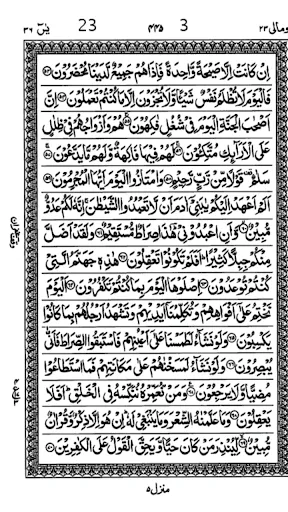 يٰسٓ ٣٦ 23 ٤٤٥ 3 ومالى ٢٣
اِنْ كَانَتْ اِلَّا صَيْحَةً وَّاحِدَةً فَاِذَا هُمْ جَمِيْعٌ لَّدَيْنَا مُحْضَرُوْنَ ۝٥٣
فَالْيَوْمَ لَا تُظْلَمُ نَفْسٌ شَيْـًٔا وَّلَا تُجْزَوْنَ اِلَّا مَا كُنْتُمْ تَعْمَلُوْنَ ۝٥٤ اِنَّ
اَصْحٰبَ الْجَنَّةِ الْيَوْمَ فِيْ شُغُلٍ فٰكِهُوْنَ ۝٥٥ هُمْ وَاَزْوَاجُهُمْ فِيْ ظِلٰلٍ
عَلَى الْاَرَآئِكِ مُتَّكِـُٔوْنَ ۝٥٦ لَهُمْ فِيْهَا فَاكِهَةٌ وَّلَهُمْ مَّا يَدَّعُوْنَ ۝٥٧
سَلٰمٌ قَوْلًا مِّنْ رَّبٍّ رَّحِيْمٍ ۝٥٨ وَامْتَازُوا الْيَوْمَ اَيُّهَا الْمُجْرِمُوْنَ ۝٥٩
اَلَمْ اَعْهَدْ اِلَيْكُمْ يٰبَنِيْٓ اٰدَمَ اَنْ لَّا تَعْبُدُوا الشَّيْطٰنَ اِنَّهٗ لَكُمْ عَدُوٌّ
مُّبِيْنٌ ۝٦٠ وَّاَنِ اعْبُدُوْنِيْ هٰذَا صِرَاطٌ مُّسْتَقِيْمٌ ۝٦١ وَلَقَدْ اَضَلَّ
مِنْكُمْ جِبِلًّا كَثِيْرًا اَفَلَمْ تَكُوْنُوْا تَعْقِلُوْنَ ۝٦٢ هٰذِهٖ جَهَنَّمُ الَّتِيْ
كُنْتُمْ تُوْعَدُوْنَ ۝٦٣ اِصْلَوْهَا الْيَوْمَ بِمَا كُنْتُمْ تَكْفُرُوْنَ ۝٦٤ اَلْيَوْمَ
نَخْتِمُ عَلٰٓى اَفْوَاهِهِمْ وَتُكَلِّمُنَآ اَيْدِيْهِمْ وَتَشْهَدُ اَرْجُلُهُمْ بِمَا كَانُوْا
يَكْسِبُوْنَ ۝٦٥ وَلَوْ نَشَآءُ لَطَمَسْنَا عَلٰٓى اَعْيُنِهِمْ فَاسْتَبَقُوا الصِّرَاطَ فَاَنّٰى
يُبْصِرُوْنَ ۝٦٦ وَلَوْ نَشَآءُ لَمَسَخْنٰهُمْ عَلٰى مَكَانَتِهِمْ فَمَا اسْتَطَاعُوْا
مُضِيًّا وَّلَا يَرْجِعُوْنَ ۝٦٧ وَمَنْ نُّعَمِّرْهُ نُنَكِّسْهُ فِي الْخَلْقِ اَفَلَا
يَعْقِلُوْنَ ۝٦٨ وَمَا عَلَّمْنٰهُ الشِّعْرَ وَمَا يَنْۢبَغِيْ لَهٗ اِنْ هُوَ اِلَّا ذِكْرٌ وَّقُرْاٰنٌ
مُّبِيْنٌ ۝٦٩ لِّيُنْذِرَ مَنْ كَانَ حَيًّا وَّيَحِقَّ الْقَوْلُ عَلَى الْكٰفِرِيْنَ ۝٧٠
منزل ٥